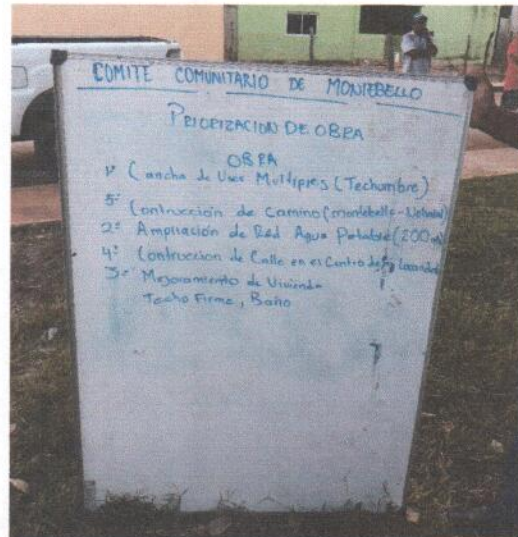 COMITE COMUNITARIO DE MONTEBELLO
PRIORIZACION DE OBRA
OBRA
1º Cancha de Usos Multiples (Techumbre)
5º Contrucción de Camino (montebello-
2º Ampliación de Red Agua Potable (200 m)
4º Contruccion de Calle en el Centro de la Localidad
3º Mejoramiento de Vivienda
Techo Firme, Baño